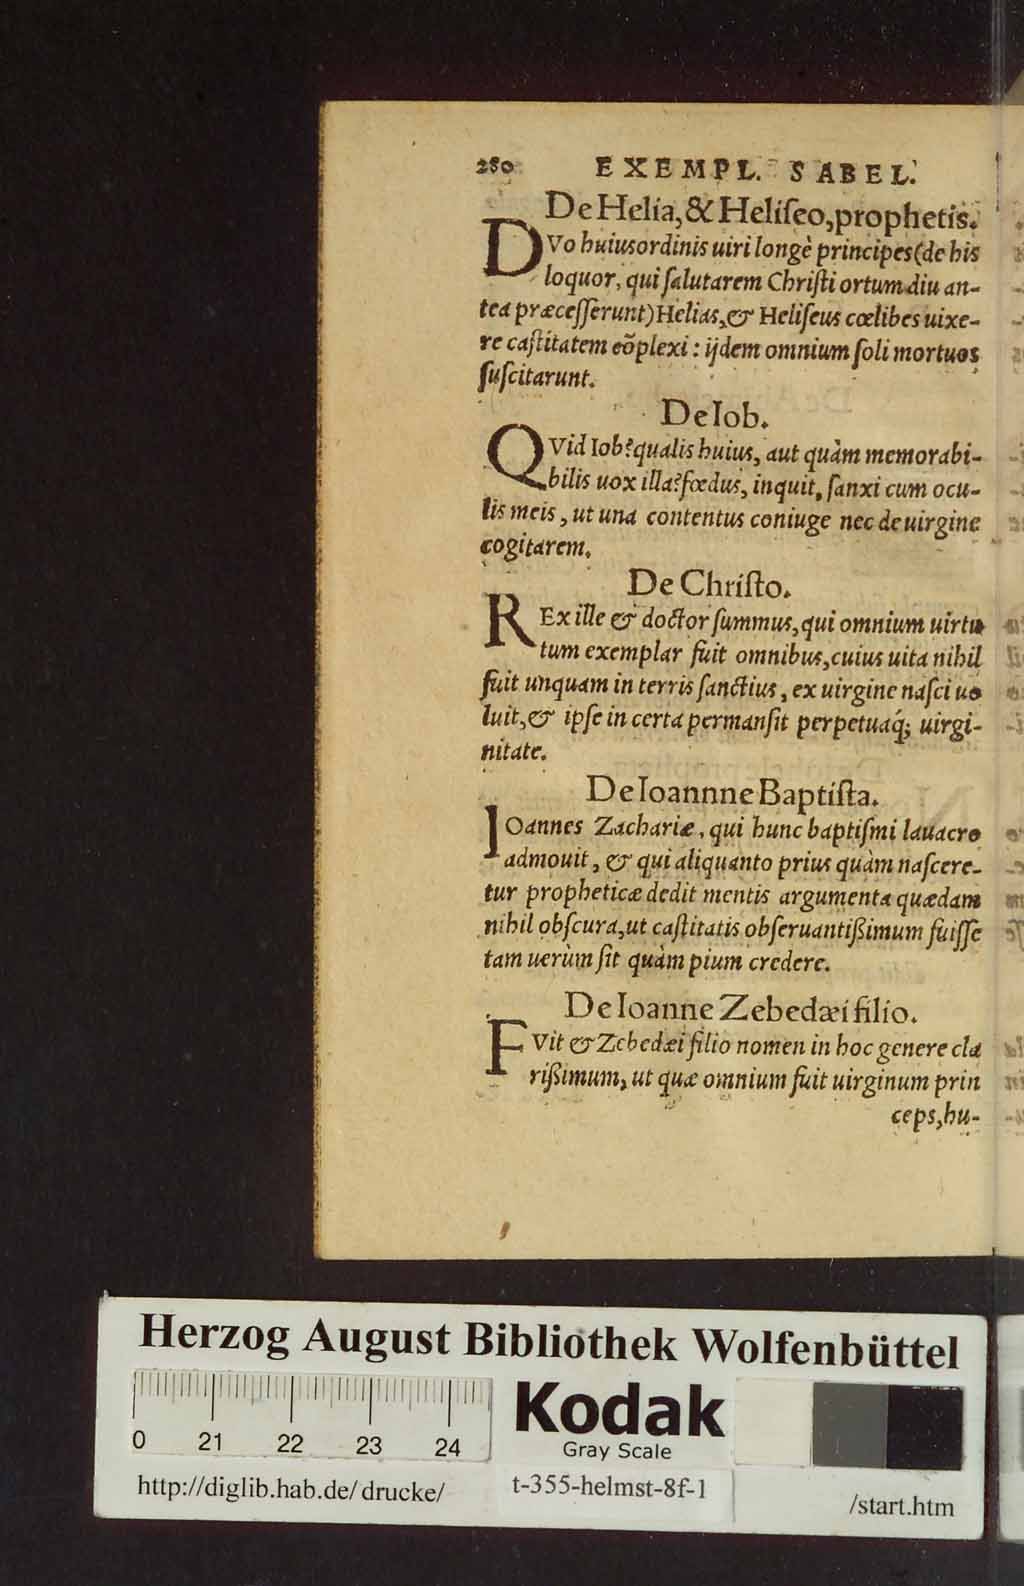 280 EXEMPL. SABEL.
De Helia, & Heliſeo, prophetis.
DVo huius ordinis uiri longè principes (de his
loquor, qui ſalutarem Chriſti ortum diu an-
tea præceſſerunt) Helias, & Heliſeus cœlibes uixe-
re caſtitatem cõplexi: ijdem omnium ſoli mortuos
ſuſcitarunt.
De Iob.
QVid Iob? qualis huius, aut quàm memorabi-
bilis uox illa? fœdus, inquit, ſanxi cum ocu-
lis meis, ut una contentus coniuge nec de uirgine
cogitarem.
De Chriſto.
REx ille & doctor ſummus, qui omnium uirtu
tum exemplar fuit omnibus, cuius uita nihil
fuit unquam in terris ſanctius, ex uirgine naſci uo
luit, & ipſe in certa permanſit perpetuaq́; uirgi-
nitate.
De Ioannne Baptiſta.
IOannes Zachariæ, qui hunc baptiſmi lauacro
admouit, & qui aliquanto prius quàm naſcere-
tur propheticæ dedit mentis argumenta quædam
nihil obſcura, ut caſtitatis obſeruantißimum fuiſſe
tam uerùm ſit quàm pium credere.
De Ioanne Zebedæi filio.
FVit & Zebedæi filio nomen in hoc genere cla
rißimum, ut quæ omnium fuit uirginum prin
ceps, hu-
Herzog August Bibliothek Wolfenbüttel
0 21 22 23 24
Kodak
Gray Scale
http://diglib.hab.de/drucke/ t-355-helmst-8f-1 /start.htm